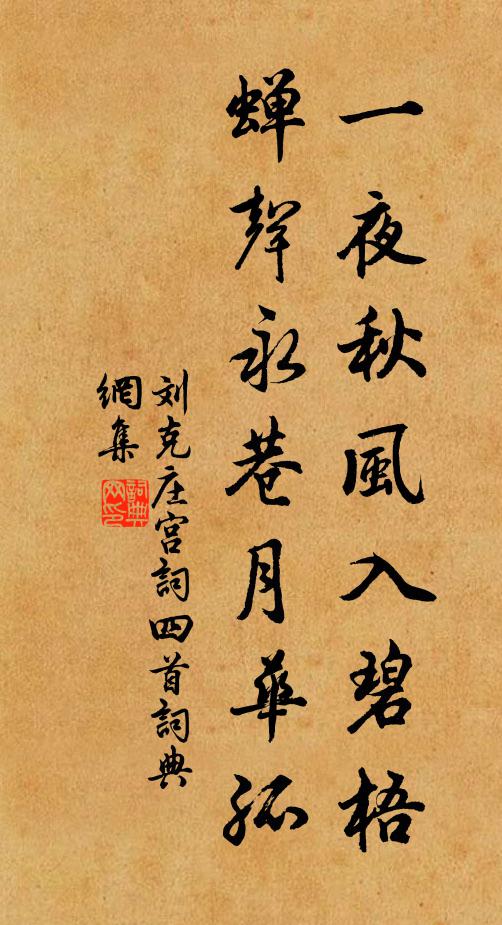 一夜秋風入碧梧
蟬聲永巷月華孤
刘克庄宫詞四首詞典
網集
詞典网印